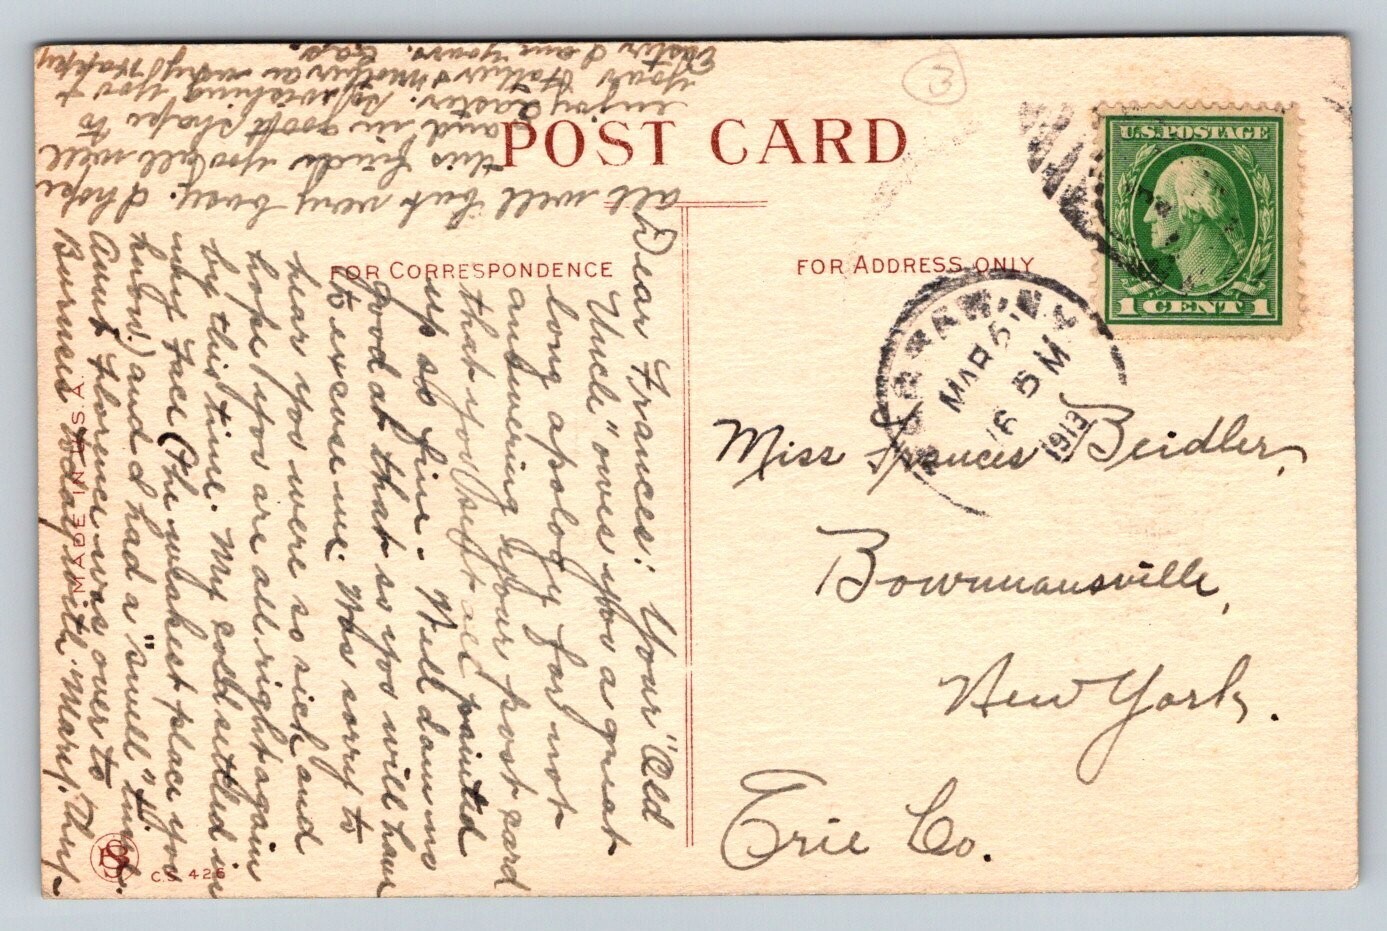 POST CARD
FOR CORRESPONDENCE
FOR ADDRESS ONLY
3
U.S. POSTAGE
1 CENT 1
N.Y.
MAR 5
5 M
1913
Miss Frances Beidler,
Bowmansville,
New York.
Erie Co.
Dear Frances: Your "Old
Uncle" owes you a great
long apology for not
answering your post card
that you sent all painted
up so fine. Well I am no
good at that so you will have
to excuse me. Was sorry to
hear you were so sick and
hope you are all right again
by this time. My cold settled in
my face (the weakest place you
know) and I had a "swell" time.
Aunt Florence was over to
Burmeis today with Mary. They
all well but very busy. I hope
this finds you all well
and in good shape to
enjoy Easter. So wishing you &
your Father & Mother a very Happy
Easter I am yours.
MADE IN U.S.A.
C.S. 426